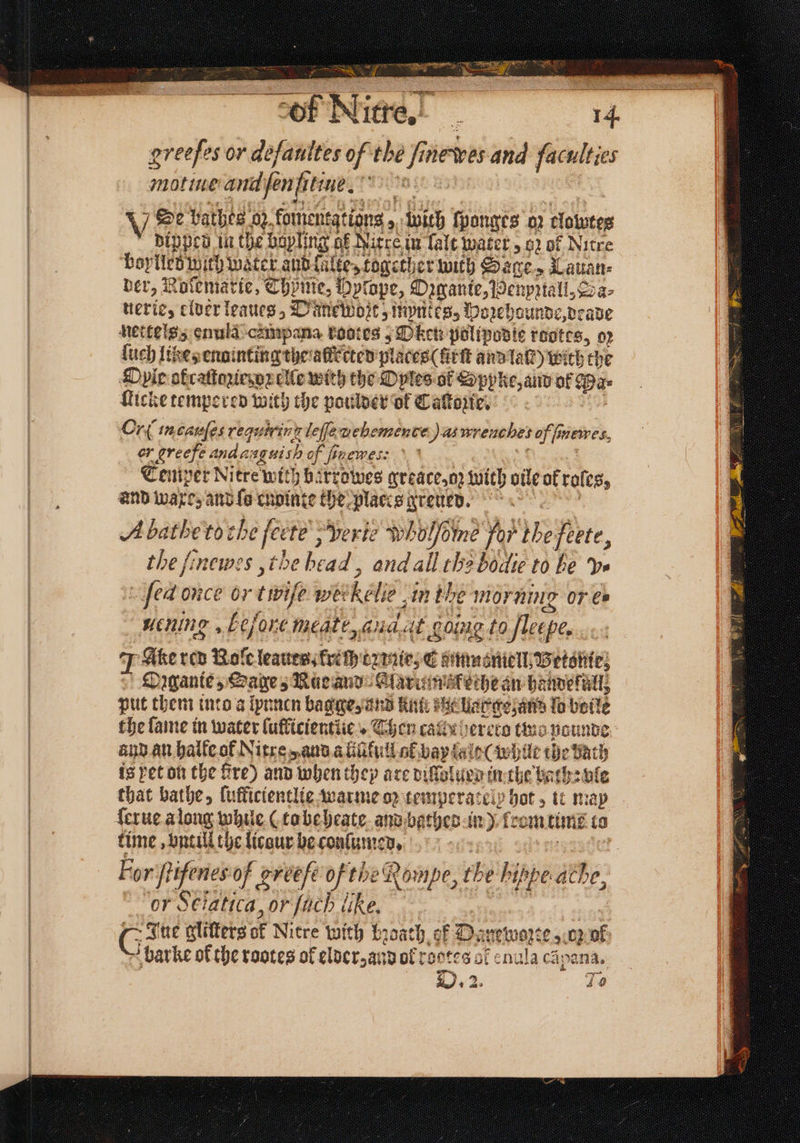 of Nitre. 14
greefes or defaultes of the sinewes and faculties
motiue and sensitiue.
VSe bathes or fomentations, with sponges or cloutes
dipped in the boyling of Nitre in salt water, or of Nitre
boylled with water and salte, together with Sage, Lauan-
der, Rosemarie, Thyme, Hysope, Organie, Penyriall, Sa-
uerie, elder leaues, Danewort, myntes, Horehounde, deade
nettels, enula campana rootes, Oken polipodie rootes, or
such like, enointing the affected places (first and last) with the
Oyle of castorie, or else with the Oyles of Spyke, and of Ma-
sticke tempered with the poulder of Castorie.
Or (in causes requiring lesse vehemence) as wrenches of sinewes,
or greefe and anguish of sinewes:
Temper Nitre with barrowes greace, or with oile of roses,
and waxe, and so enointe the places greued.
A bathe to the feete, verie wholsome for the feete,
the sinewes, the head, and all the bodie to be v-
sed once or twise weekelie, in the morning or e-
uening, before meate, and at going to sleepe.
TAke red Rose leaues, freth, Cammomell, Betonie,
Organie, Sage, Rue and of eche an handefull,
put them into a lynnen bagge, and knit the bagge, and so boile
the same in water sufficientlie. Then caste hereto two pounde
and an halfe of Nitre, and a fistfull of bay salt (while the bath
is yet on the fire) and when they are dissolued in the bath: vse
that bathe, sufficientlie warme or temperately hot, it may
serue a long while (to be heate, and bathed in) from time to
time, vntill the licour be consumed.
For stifenes of greefe of the Rompe, the hippe ache,
or Sciatica, or such like.
VSe glisters of Nitre with broath, of Danewort, or of
barke of the rootes of elder, and of rootes of enula capana.
D.2. To